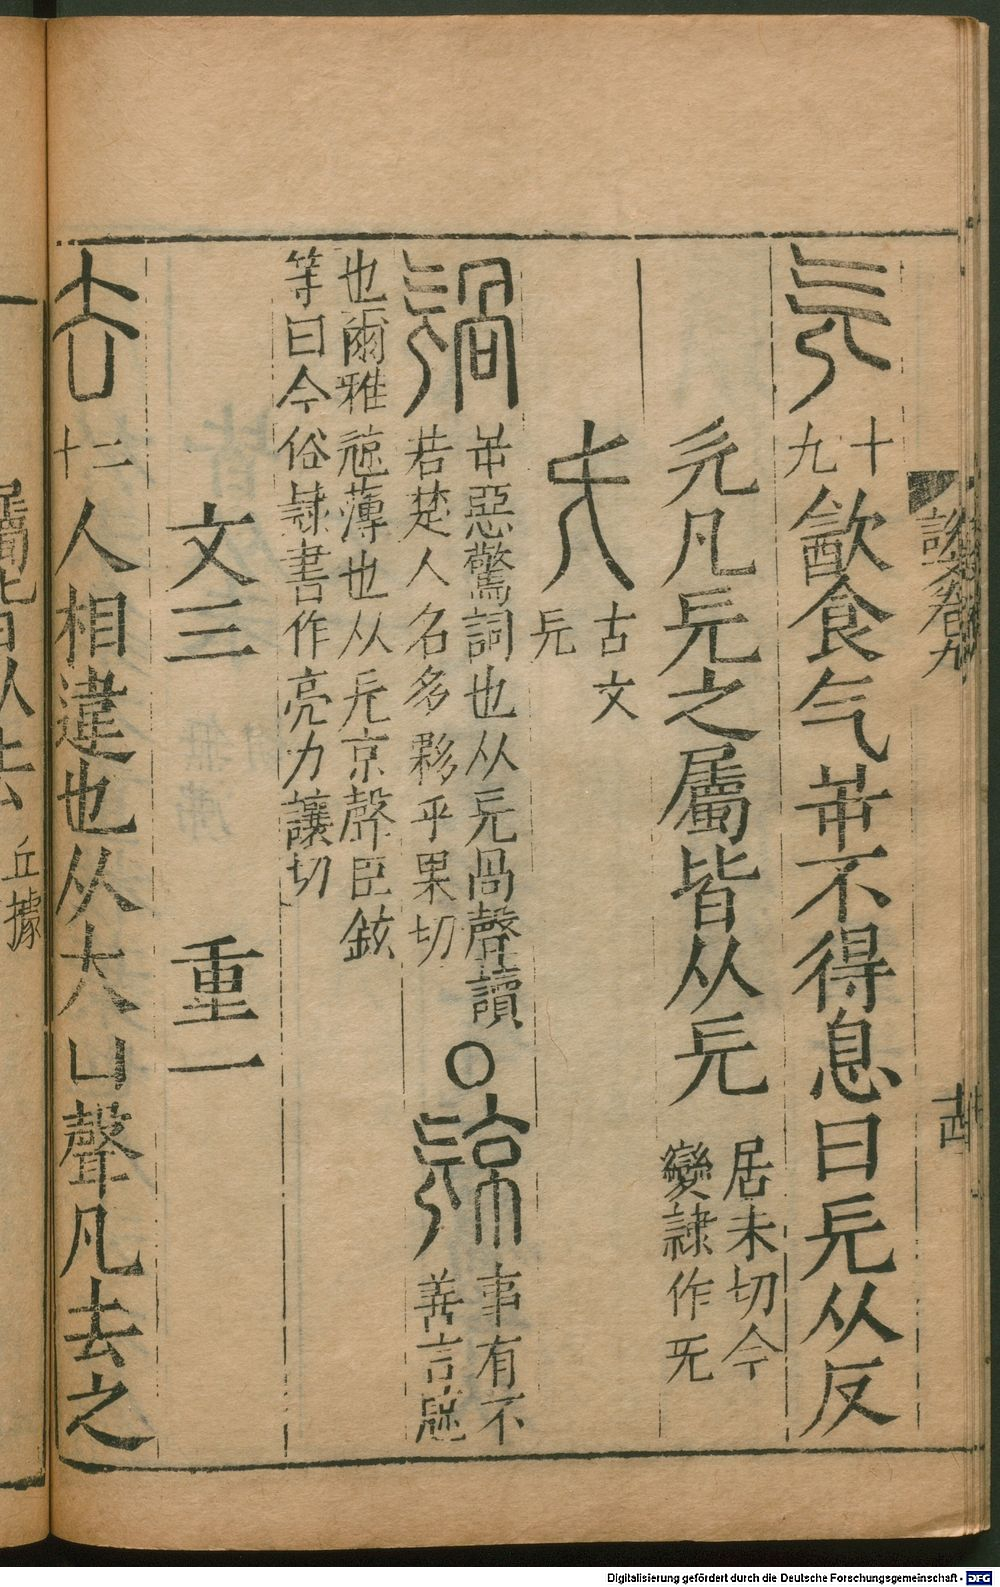 十九 㱃食气屰不得息曰旡从反
欠凡旡之屬皆从旡 居未切今變隷作旡
古文旡
屰惡驚詞也从旡咼聲讀若楚人名多夥乎果切 ○ 事有不善言㹁
也爾雅㹁薄也从旡京聲臣鉉等曰今俗隷書作亮力讓切
文三 重一
十二 人相違也从大凵聲凡去之
丘據
Digitalisierung gefördert durch die Deutsche Forschungsgemeinschaft - DFG